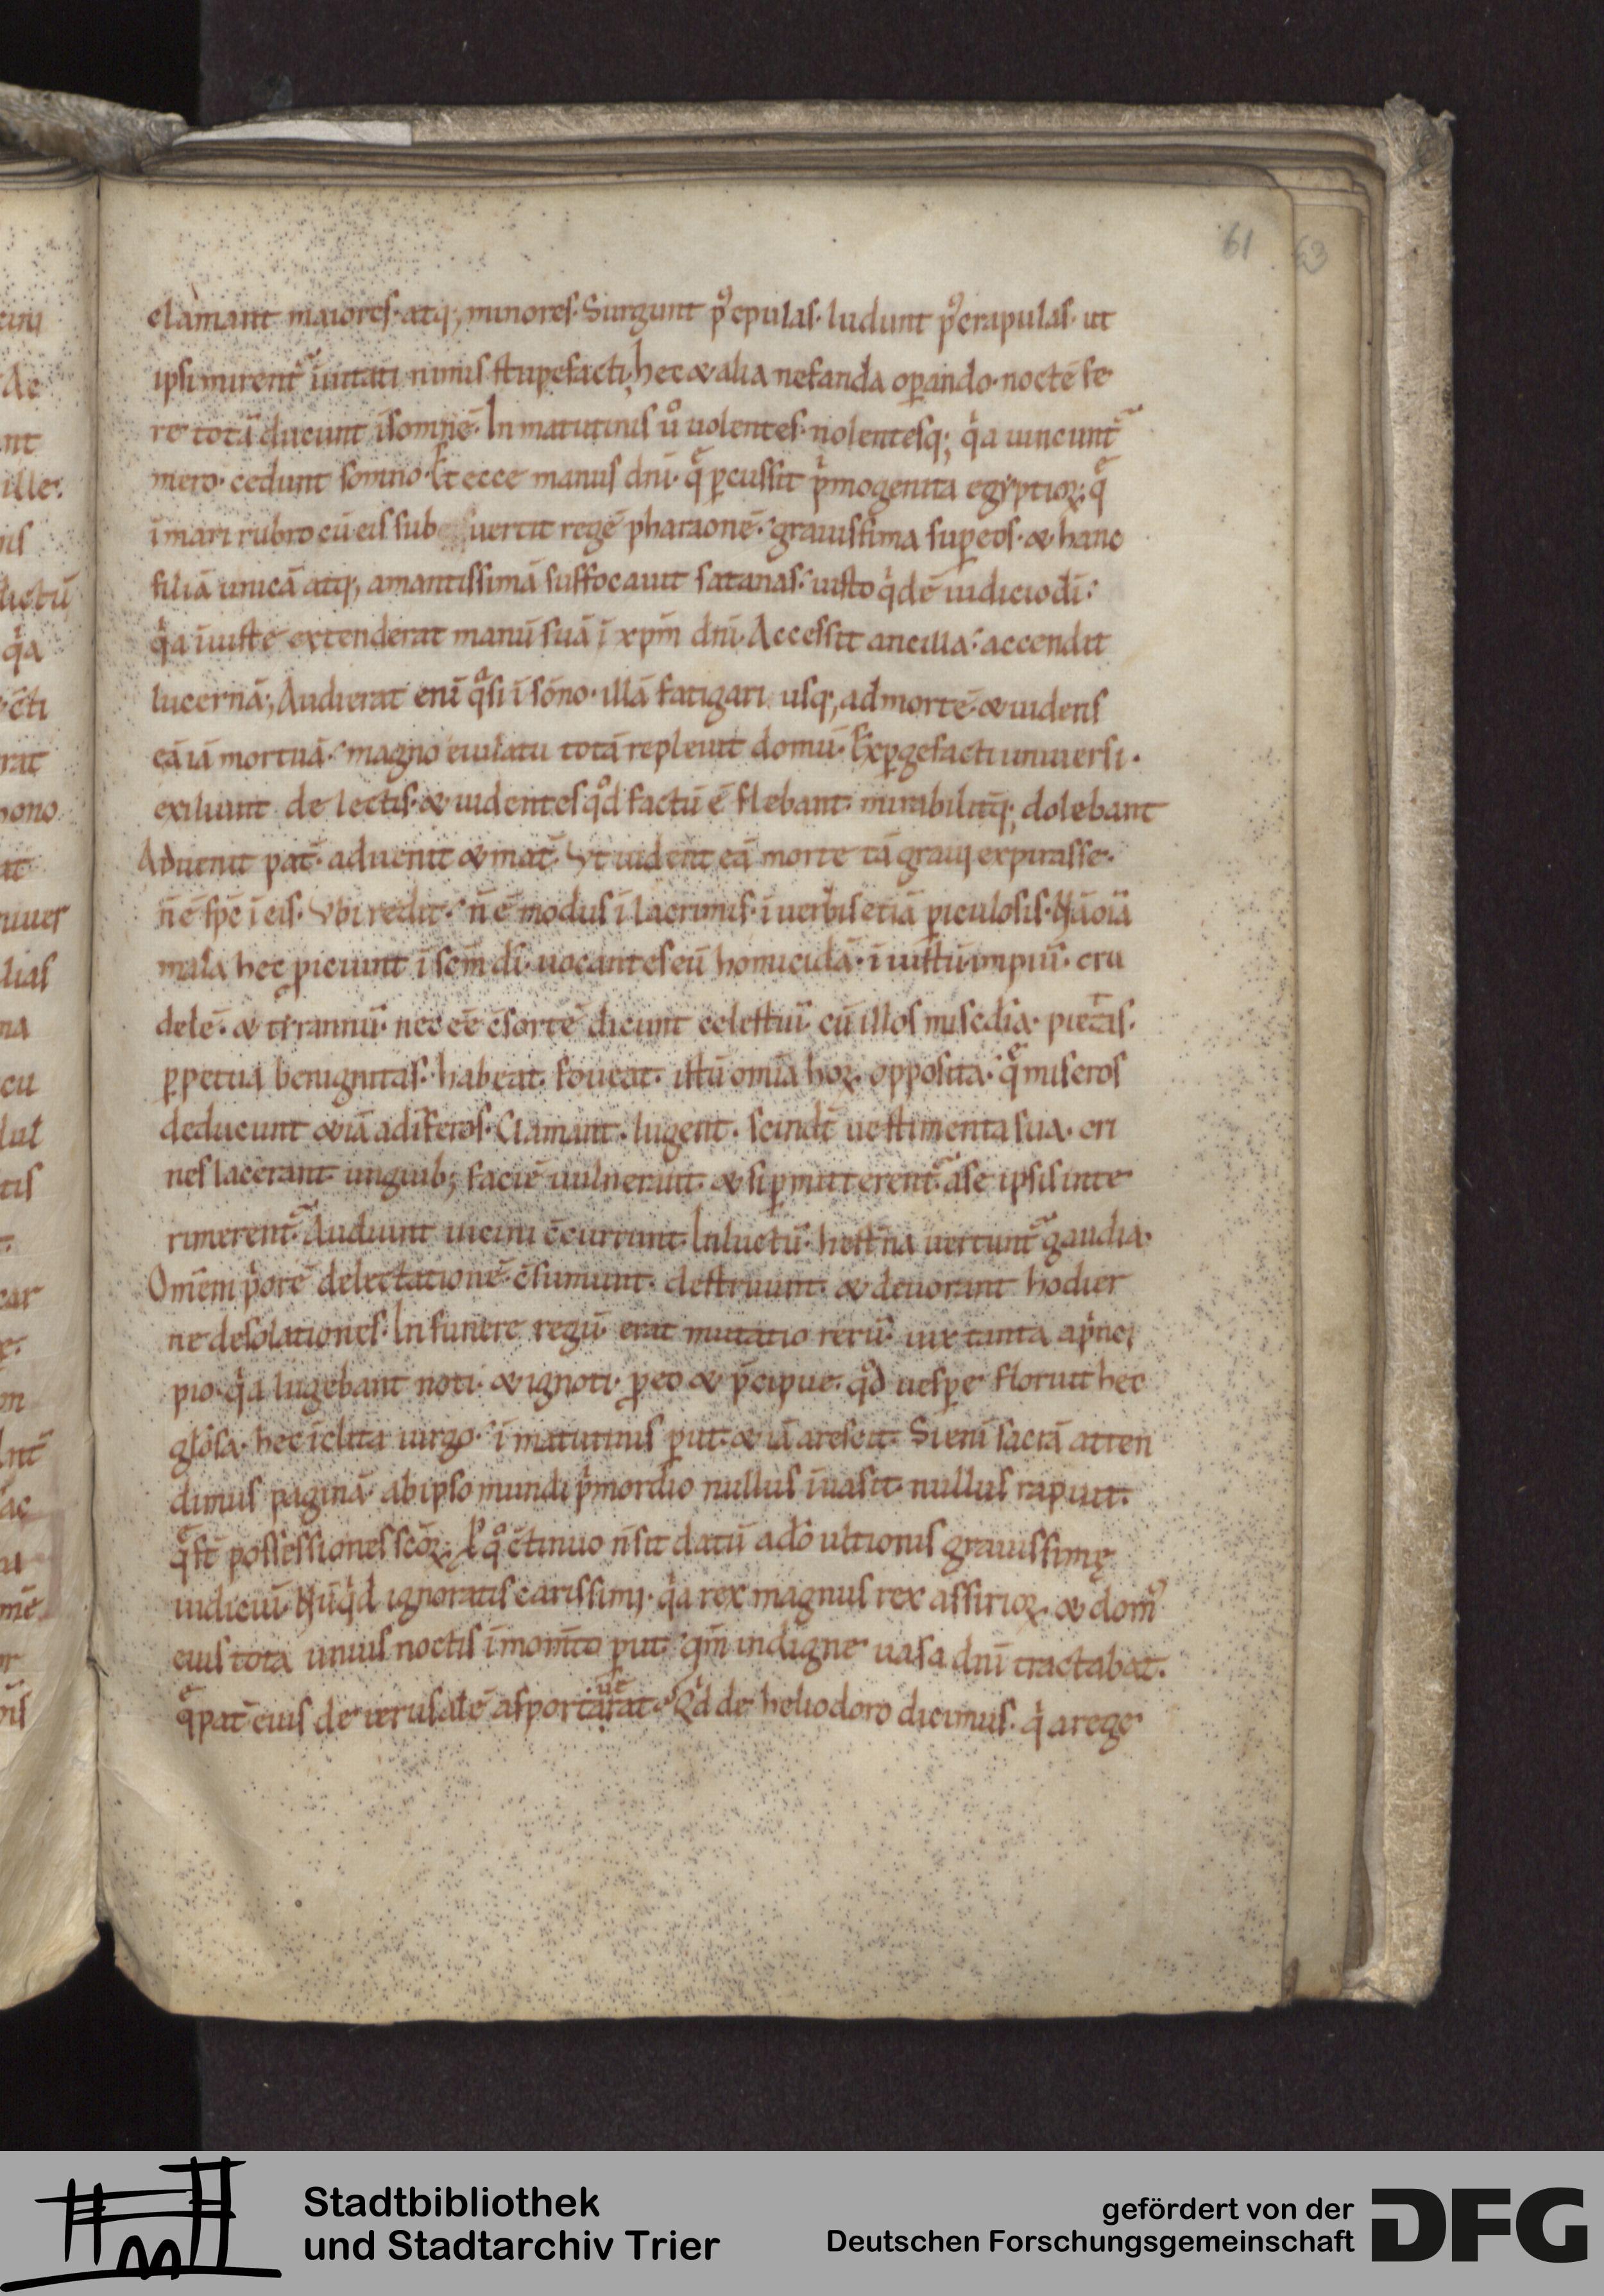 61
63
clamant maiores· atq; minores· Surgunt pꝰ epulas· ludunt pꝰ crapulas· ut
ipsi mirent᷑ iuitati nimis stupefacti, hec & alia nefanda oꝑando· noctē fe
re totā ducunt īsomnē· In matutinis ůo uolentes· nolentesq; qͥa uincunt᷑
mero· cedunt somno· Et ecce manus dnī· qͣ ꝑcussit pͥmogenita egyptioꝝ· qͣ
ī mari rubro cū eis sub uertit regē pharaonē· grauissima suꝑ eos· & hanc
filiā unicā atq; amantissimā suffocauit satanas· iusto qͥdē iudicio dī·
qͥa īiuste extenderat manū suā ī xpm̄ dnī· Accessit ancilla· accendit
lucernā; Audierat enī qͣsi ī sōno· illā fatigari usq; ad mortē· & uidens
eā iā mortuā· magno eiulatu totā repleuit domū· Exꝑgefacti uniuersi·
exiliunt de lectis· & uidentes qͦd factū ē flebant· mirabilitq; dolebant
Aduenit pat̄· aduenit & mat̄· Vt uident eā morte tā graui expirasse·
n̄ ē spē ī eis· Vbi redit· n̄ ē modus ī lacrimis· ī uerbis etiā ꝑiculosis· Nā oīa
mala hec ꝓiciunt ī scm̄ dī· uocantes eū homicidā· ī iustū· impiū· cru
delē· & tirannū· nec eē ꝯsortē dicunt celestiū· cū illos misc̄dia· pietatis·
ꝑpetua benignitas· habeat· foueat· istū omīa hoꝝ opposita· qͣ miseros
deducunt & iā ad īferos· Clamant· lugent· scindt̄ uestimenta sua· cri
nes lacerant· unguib; faciē uulnerant· & si ꝑmitterent᷑· a se ipsis inte
rimerent᷑· Audiunt uicini ꝯcurrunt· In luctū· hest̄na uertunt᷑ gaudia·
Omēm pͥorē delectationē ꝯsumunt· destruunt· & deuorant hodier
ne desolationes· In funere regū· erat mutatio rerū· uix tanta a pͥnci
pio· qͥa lugebant noti· & ignoti· ꝑeo & p̄cipue· qͦd uesꝑe floruit hec
glōsa· hec īclita uirgo· ī matutinis ꝑut· & iā arescit· Si enī sacrā atten
dimus paginā· ab ipso mundi pͥmordio nullus īuasit· nullus rapuit·
qͣst̄ possessiones scōꝝ· qͦ ꝯtinuo n̄ sit datū a dō ultionis grauissimę
iudiciū· Nūqͥd ignoratis carissimi· qͥa rex magnus rex assirioꝝ· & domꝰ
eius tota unius noctis ī momt̄o ꝑut· qm̄ indigne uasa dnī tractabat·
qͣ pat̄ eius de ierusalē asportarat· Qͥd de heliodoro dicimus· qͥ a rege
Stadtbibliothek
und Stadtarchiv Trier
gefördert von der
Deutschen Forschungsgemeinschaft
DFG